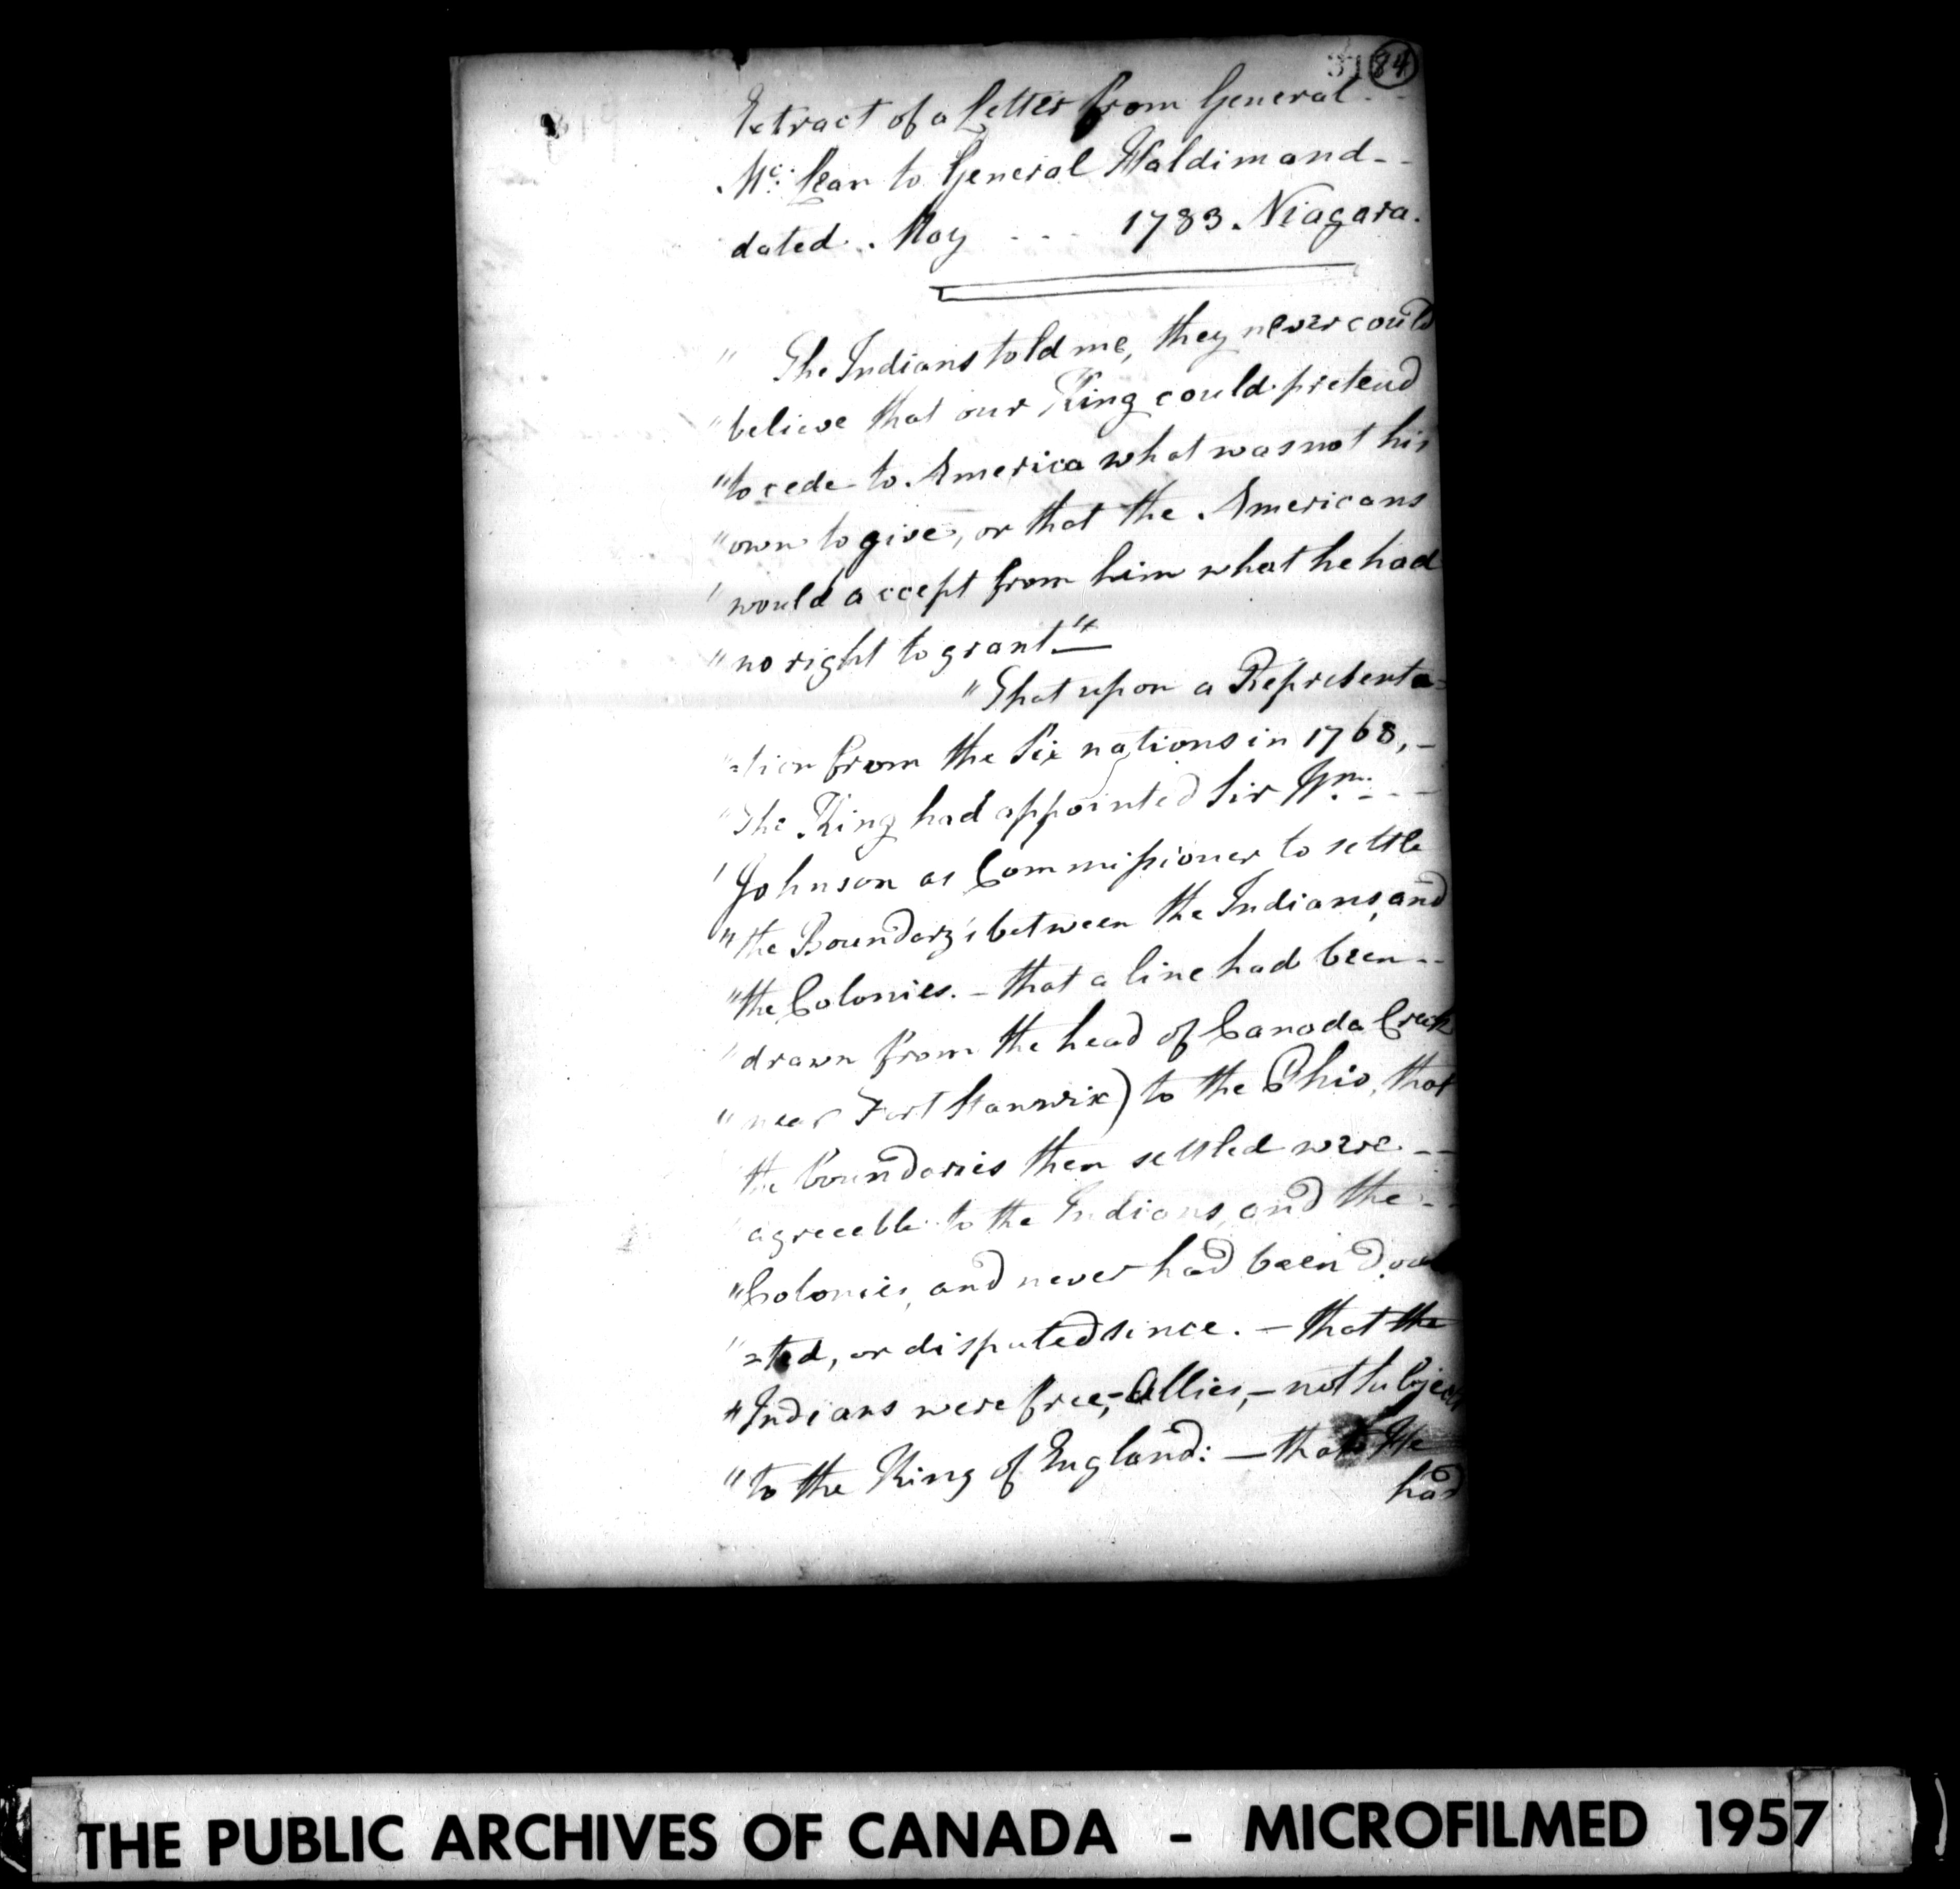 84
Extract of a Letter from General - -
Mc: Lean to General Haldimand - -
dated . May . . . . 1783. Niagara.
" The Indians told me, they never could
" believe that our King could pretend
" to cede to America what was not his
" own to give, or that the Americans
" would accept from him what he had
" no right to grant."—
" That upon a Representa=
" =tion from the Six nations in 1768, –
" The King had appointed Sir Wm. - - -
" Johnson as Commissioner to settle
" the Boundary's between the Indians, and
" the Colonies. – that a line had been - -
" drawn from the head of Canada Creek
" near Fort Stanwix) to the Ohio, that
the boundaries then settled were - -
agreeable to the Indians, and the - -
" Colonies, and never had been
" =ted, or disputed since. – that the
" Indians were free, – Allies, – not Subjects
" to the King of England: – that He
had
THE PUBLIC ARCHIVES OF CANADA - MICROFILMED 1957